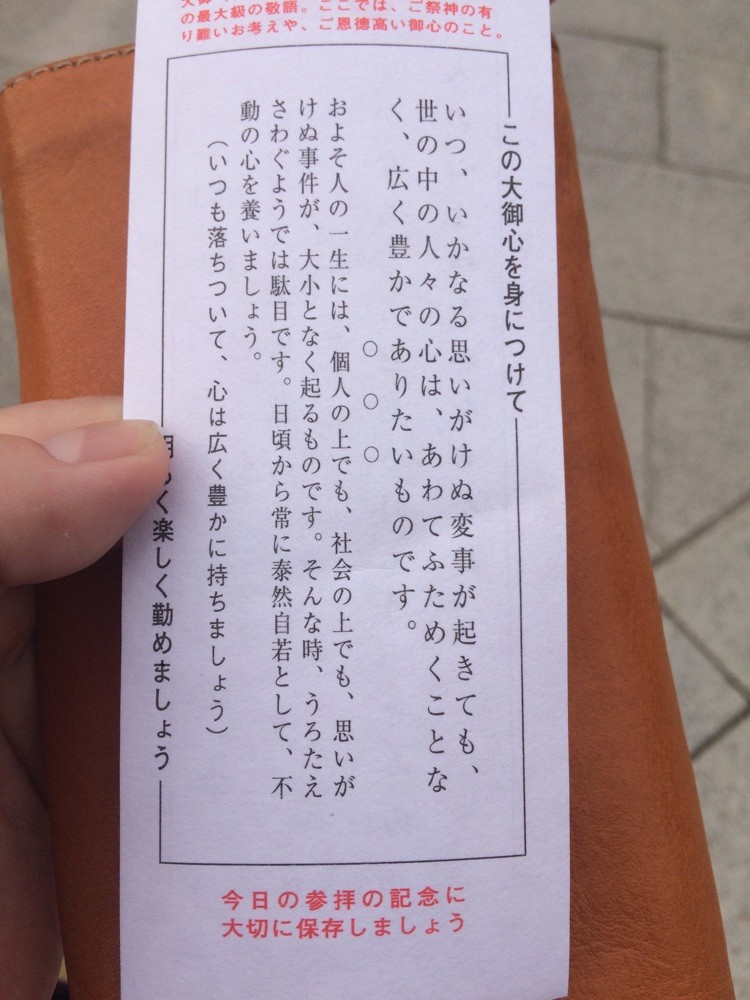 の最大級の敬語。ここでは、ご祭神の有
り難いお考えや、ご恩徳高い御心のこと。
この大御心を身につけて
いつ、いかなる思いがけぬ変事が起きても、
世の中の人々の心は、あわてふためくことな
く、広く豊かでありたいものです。
○ ○ ○
およそ人の一生には、個人の上でも、社会の上でも、思いが
けぬ事件が、大小となく起るものです。そんな時、うろたえ
さわぐようでは駄目です。日頃から常に泰然自若として、不
動の心を養いましょう。
(いつも落ちついて、心は広く豊かに持ちましょう)
く楽しく勤めましょう
今日の参拝の記念に
大切に保存しましょう